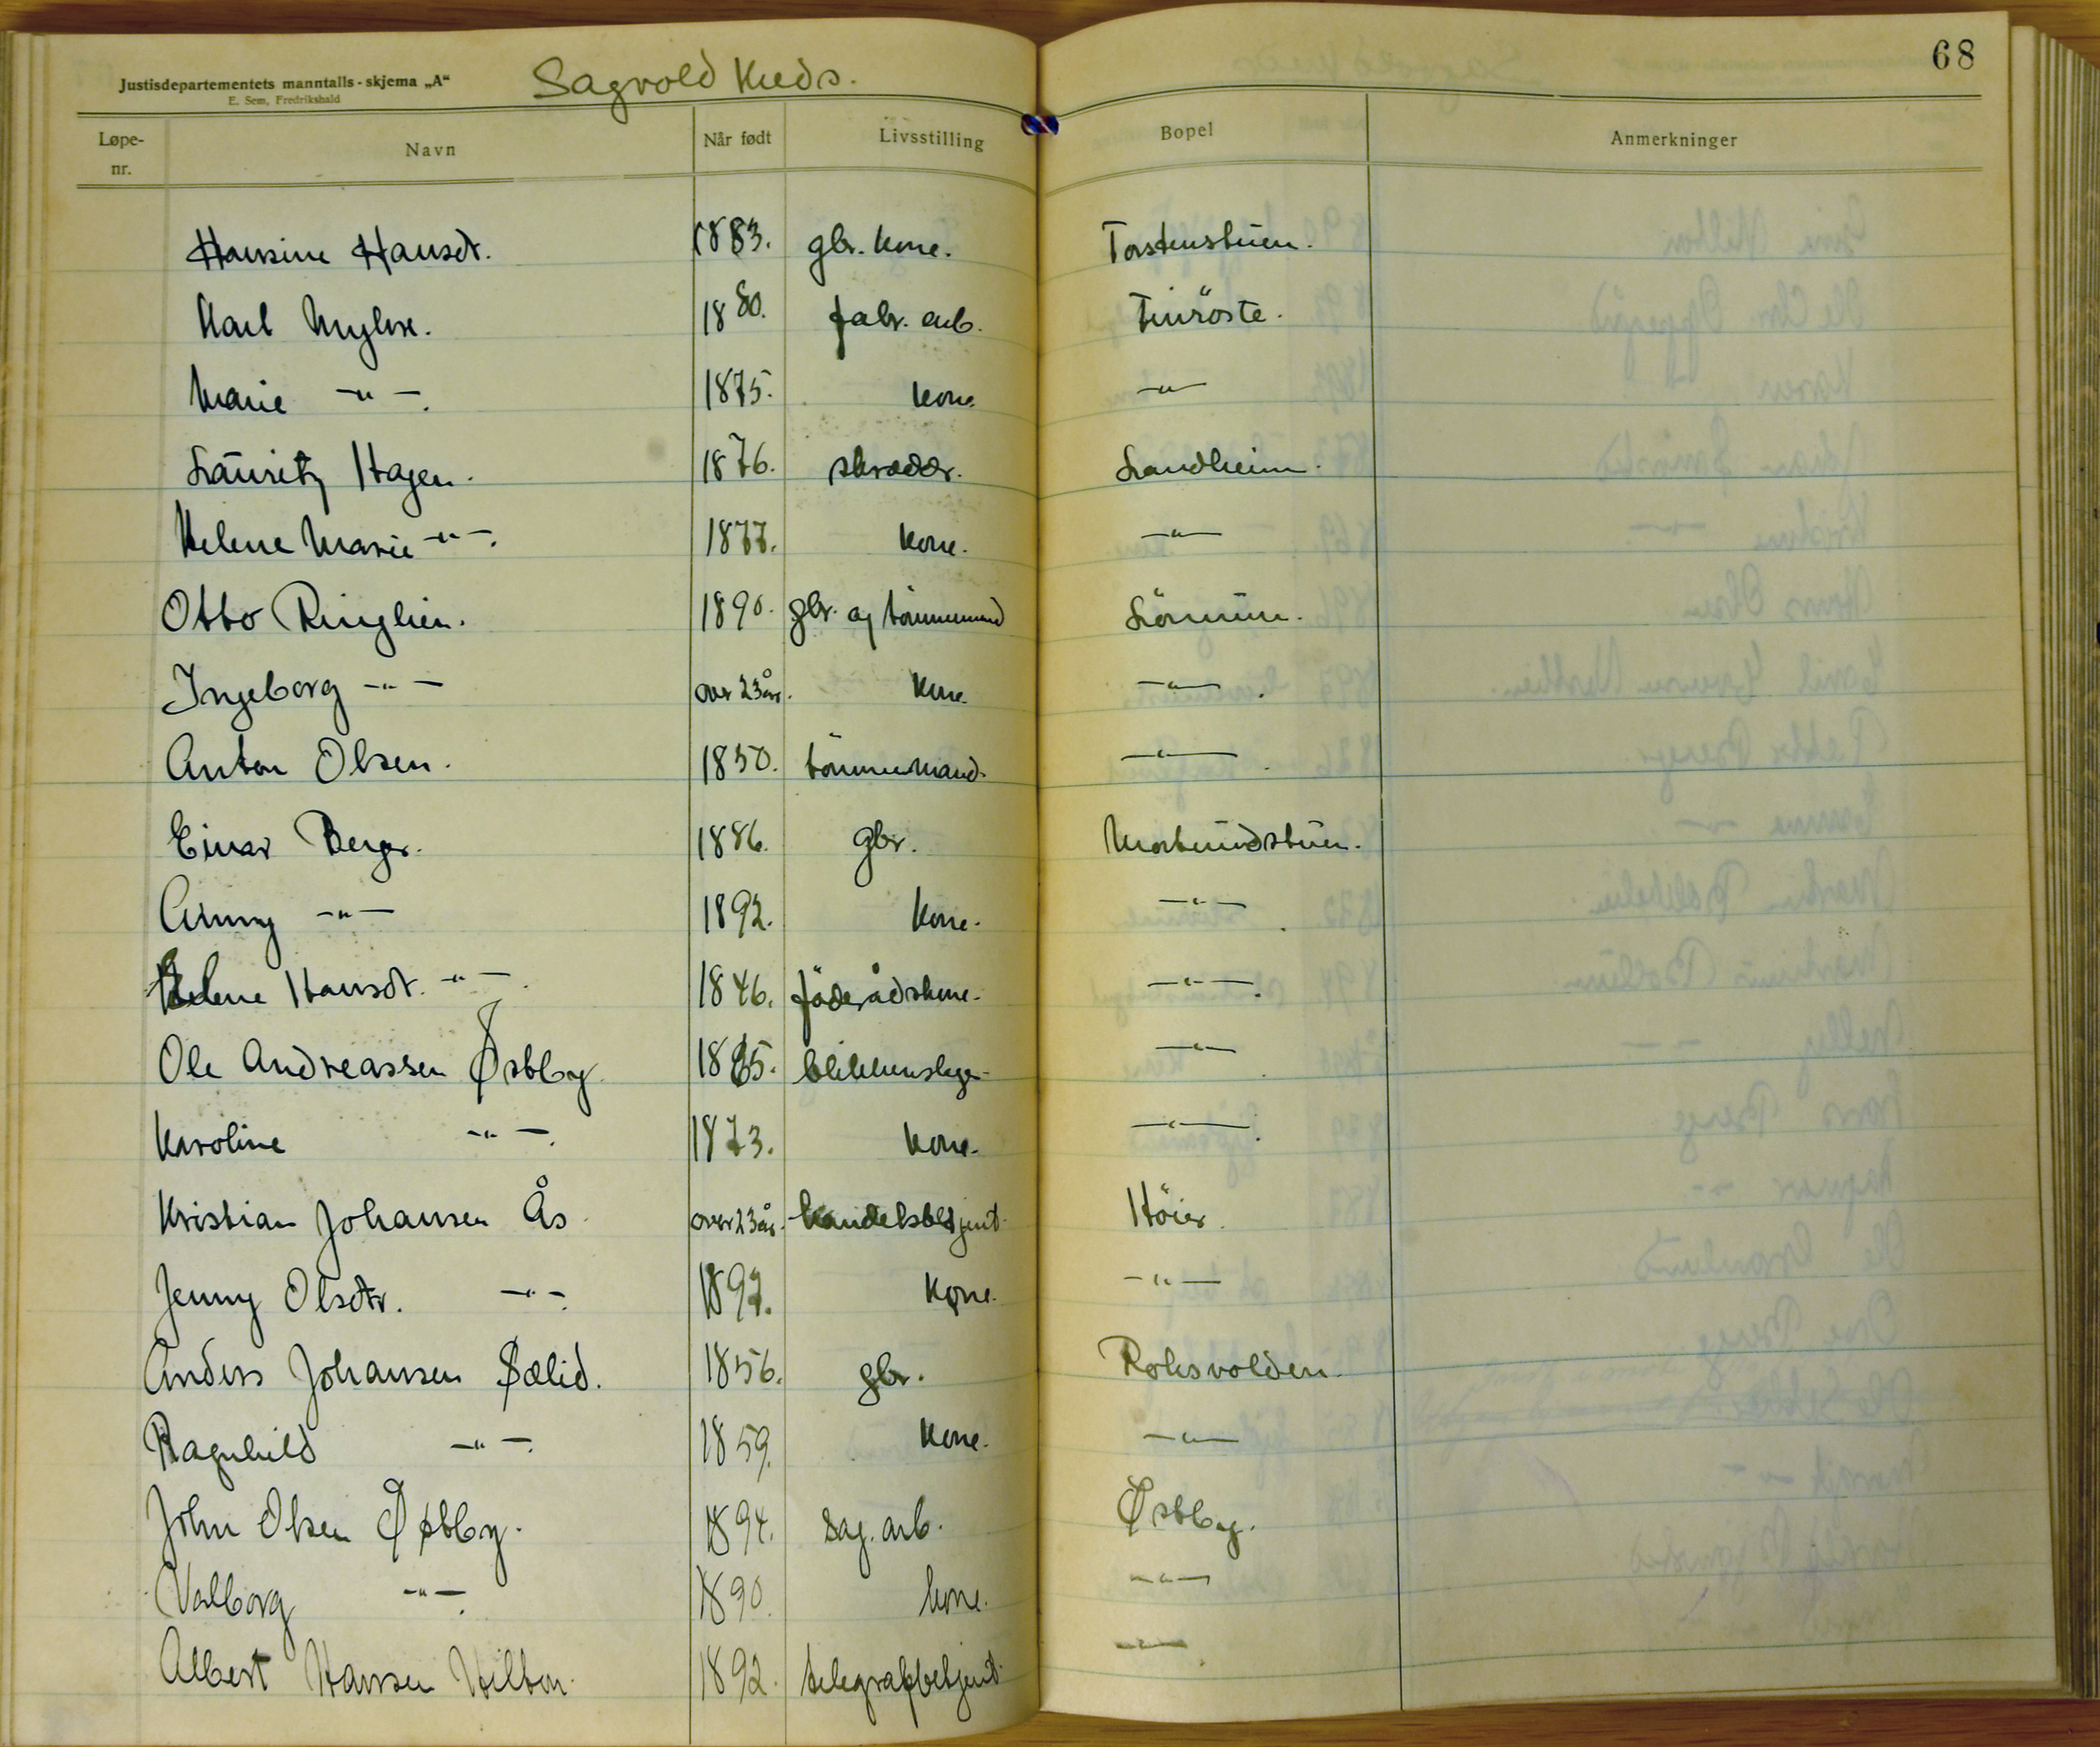 68
Justisdepartementets manntalls-skjema „A“ Sagvold Kreds.
E. Sem, Fredrikshald
Løpe-nr. Navn Når født Livsstilling Bopel Anmerkninger
Hansine Hansdt. 1883. gbr. kone. Torstenstuen.
Karl Myhre. 1880. fabr. arb. Finröste.
Marie -"-. 1875. kone -"-
Lauritz Hagen. 1876. skrædder. Landheim.
Helene Marie -"-. 1877. kone. -"-
Otto Ringlien. 1890. gbr. og tömmermand
Ingeborg -"- over 23 år. kone. -"-.
Anton Olsen. 1850. tömmermand. -"-.
Einar Berger. 1886. gbr.
Anny -"- 1892. kone. -"-.
Helene Hansdt. -"-. 1846. föderådskone. -"-.
Ole Andreassen Østby 1865. blikkenslager -"-.
Karoline -"-. 1873. kone. -"-.
Kristian Johansen Ås. over 23 år. handelsbetjent. Höier.
Jenny Olsdtr. -"-. 1897. kone. -"-
Anders Johansen Sælid. 1856. gbr. Roksvolden.
Ragnhild -"-. 1859. kone. -"-
John Olsen Østby. 1894. sag. arb. Østby.
Valborg -"-. 1890. kone. -"-
Albert Hansen 1892. telegrafbetjent. -"-.